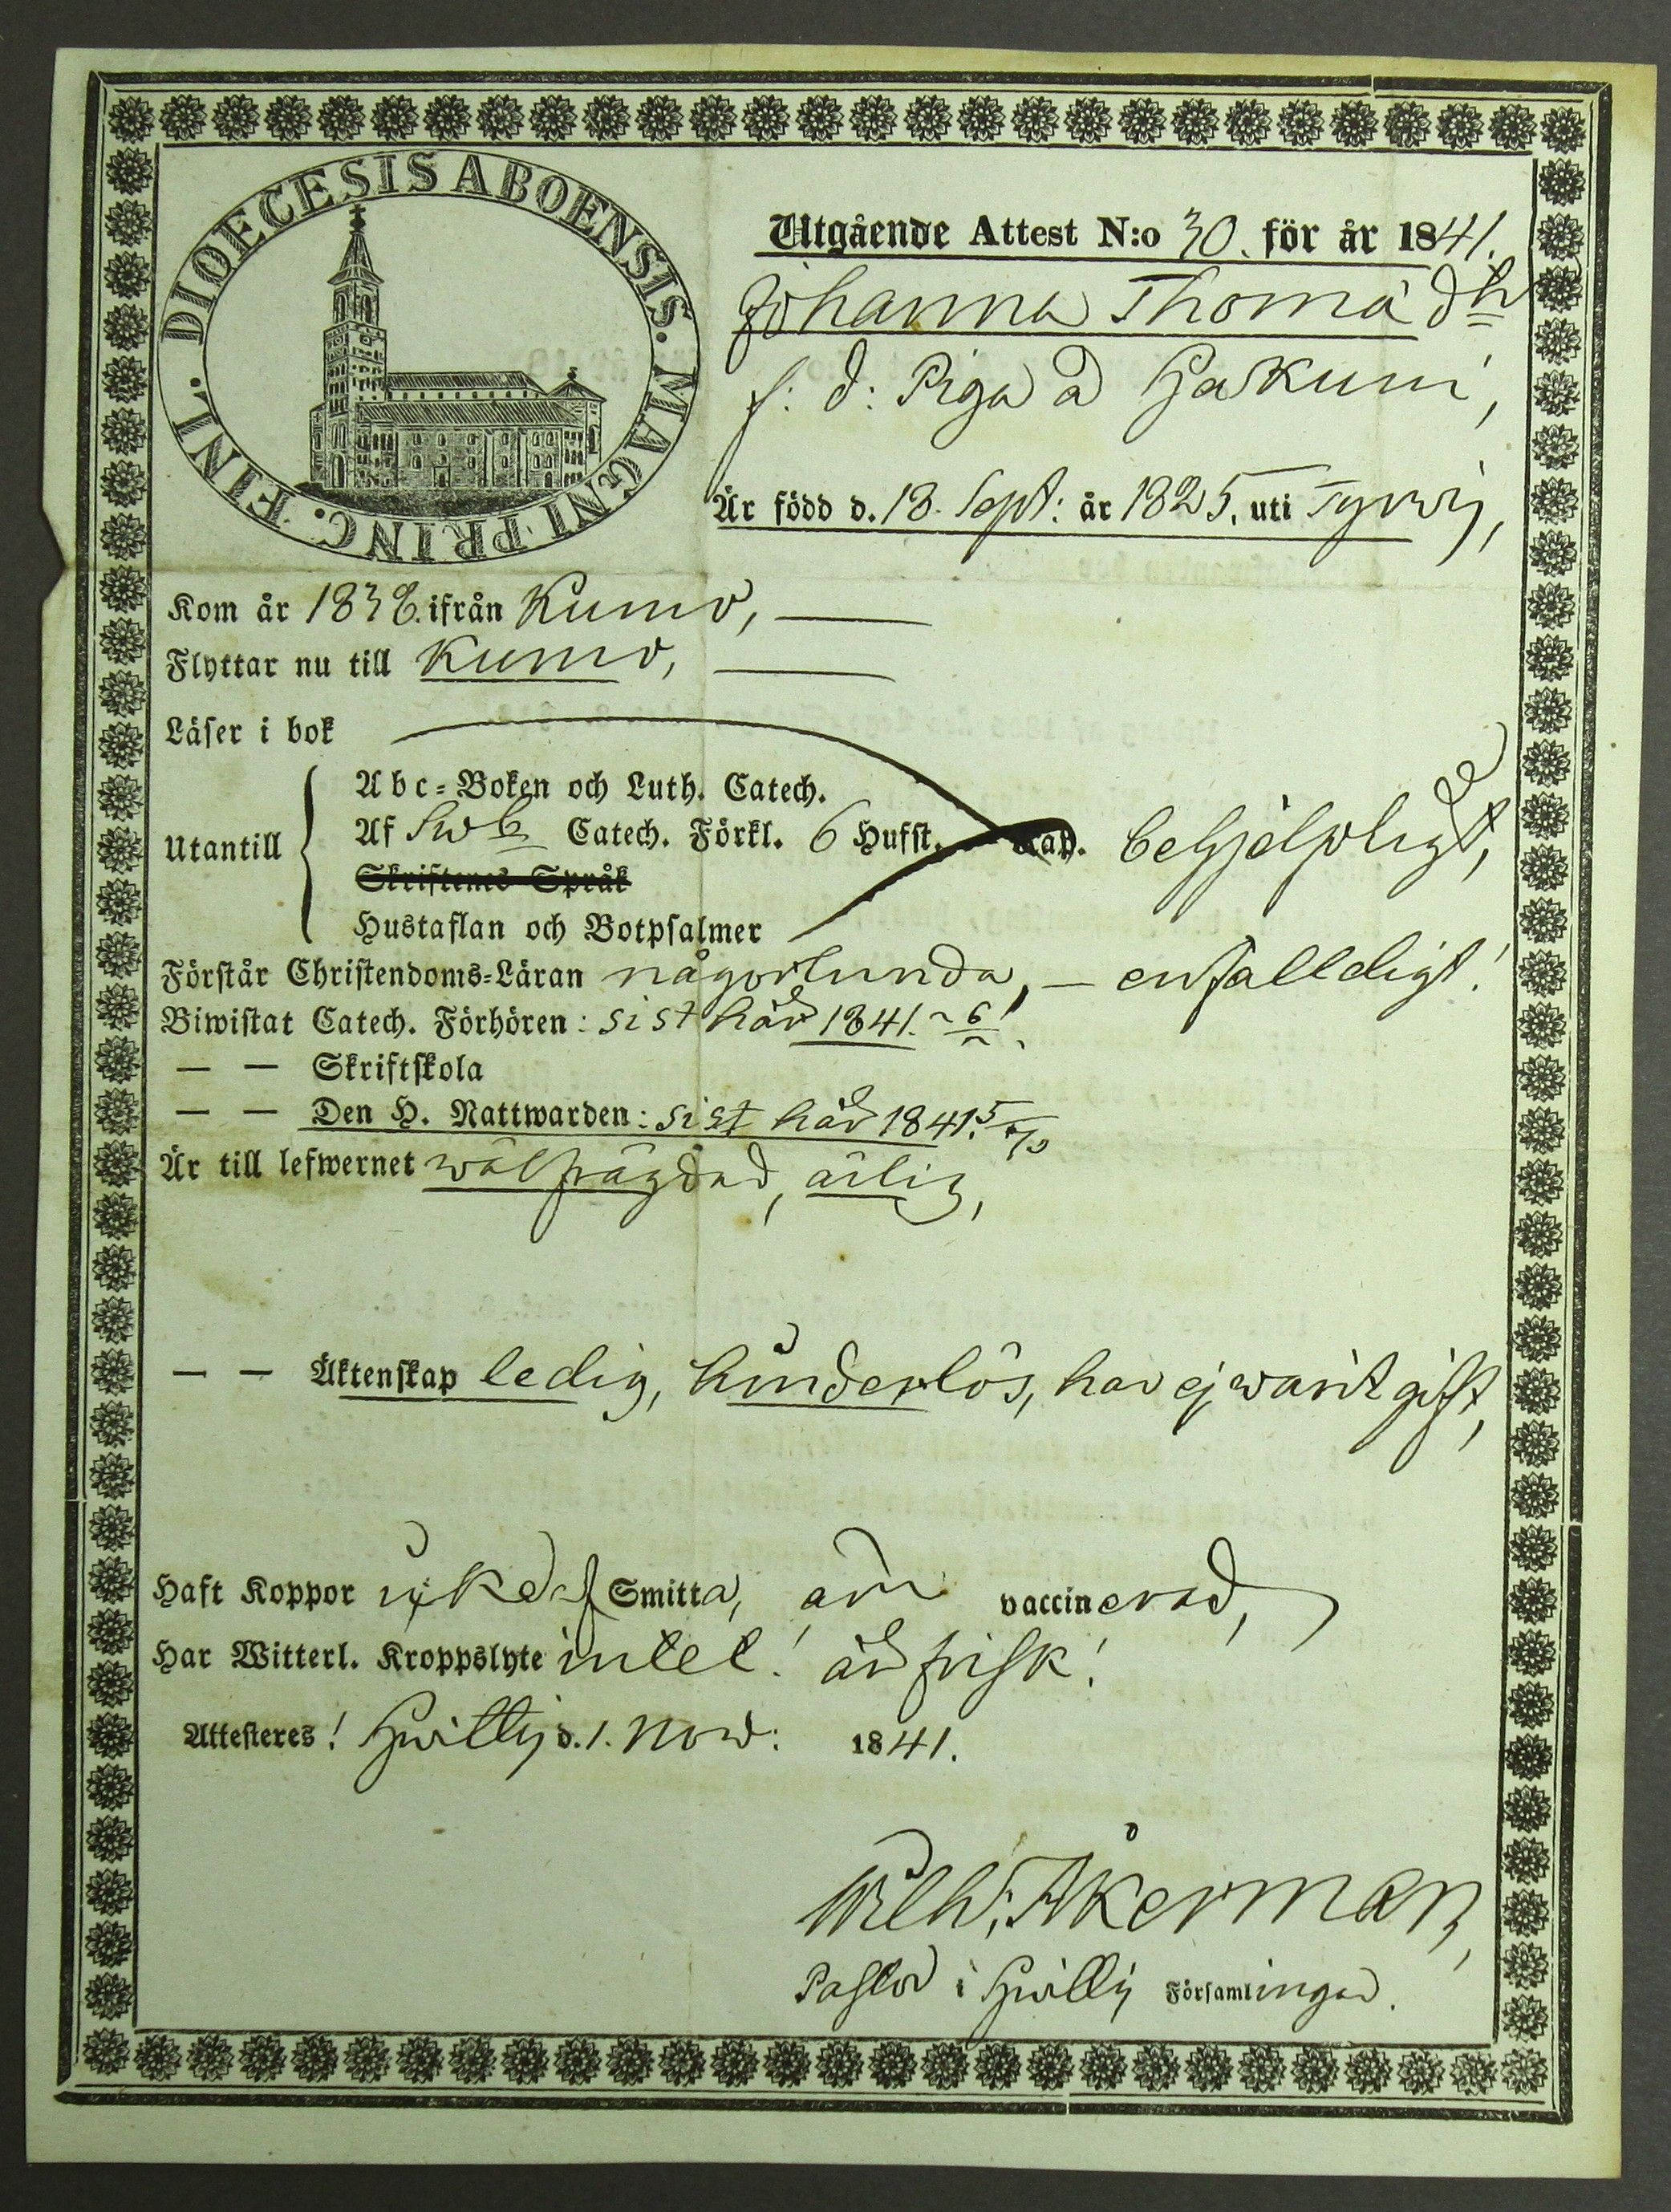 DIOECESIS ABOENSIS. MAGNI PRINC. FINL.
Utgående Attest N:o 30. för år 1841.
Johanna Thomä dr
f: d: Piga å Hakuni,
Är född d. 18. Sept: år 1825, uti Tyrwis,
Kom år 1838. ifrån Kumo,
Flyttar nu till Kumo,
Läser i bok
Abc-Boken och Luth. Catech.
Utantill Af Sweb Catech. Förkl. 6 Hufst. Kap. behjelpligt,
Skriftenes Språk
Hustaflan och Botpsalmer
Förstår Christendoms-Läran någorlunda, – enfalldigt!
Biwistat Catech. Förhören: sist här 1841.
— — Skriftskola
— — Den H. Nattwarden: sist här 1841.
Är till lefwernet wälfrägdad, ärlig,
— — Äktenskap ledig, hinderlös, har ej warit gift,
Haft Koppor Smitta, är vaccinerad,
Har Witterl. Kroppslyte intet! är frisk!
Attesteres! Hwittis d. 1. Now: 1841.
Wilh: Åkerman,
Pastor i Hwittis Församlingar.